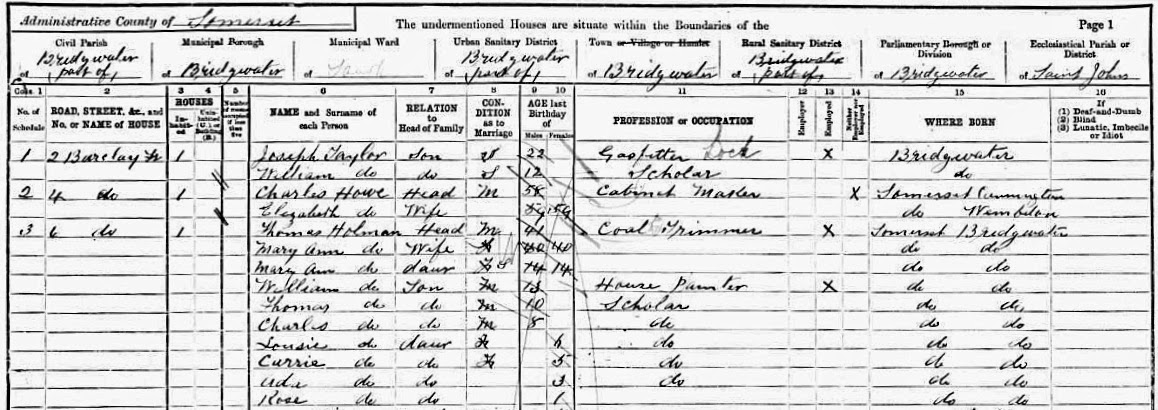 Administrative County of Somerset The undermentioned Houses are situate within the Boundaries of the Page 1
Civil Parish Municipal Borough Municipal Ward Urban Sanitary District Town or Village or Hamlet Rural Sanitary District Parliamentary Borough or Division Ecclesiastical Parish or District
of Bridgwater part of of Bridgwater of of Bridgwater part of of Bridgwater of Bridgwater part of of Bridgwater of Saint Johns
Cols. 1 2 3 4 5 6 7 8 9 10 11 12 13 14 15 16
No. of Schedule ROAD, STREET, &c., and No. or NAME of HOUSE HOUSES Inhabited Uninhabited (U.) or Building (B.) Number of rooms occupied if less than five NAME and Surname of each Person RELATION to Head of Family CONDITION as to Marriage AGE last Birthday of Males Females PROFESSION or OCCUPATION Employer Employed Neither Employer nor Employed WHERE BORN If (1) Deaf-and-Dumb (2) Blind (3) Lunatic, Imbecile or Idiot
1 2 Barclay St 1 Joseph Taylor Son S 22 Gasfitter X Bridgwater
William do do S 12 Scholar do
2 4 do 1 Charles Howe Head M 58 Cabinet Master X Somerset Cannington
Elizabeth do Wife 59 59 do Wembdon
3 6 do 1 Thomas Holman Head M 41 Coal Trimmer X Somerset Bridgwater
Mary Ann do Wife 40 40 do do
Mary Ann do daur S 14 14 do do
William do Son M 13 House Painter X do do
Thomas do do M 10 Scholar do do
Charles do do M 8 do do do
Lousie do daur F 6 do do do
Carrie do do F 5 do do do
Ada do do 3 do do do
Rose do do 1 do do